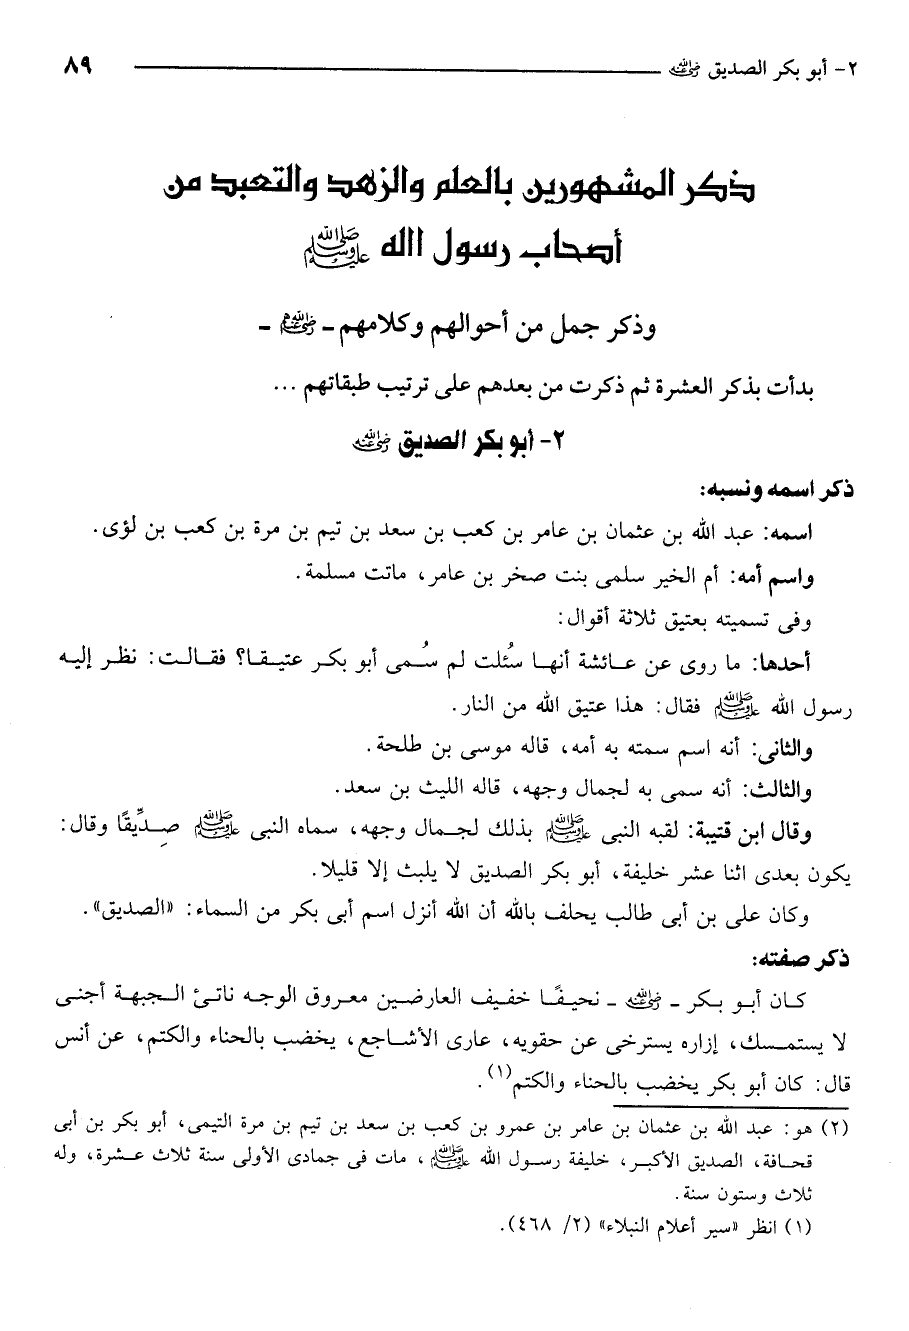 ٢- أبو بكر الصديق رضي الله عنه ٨٩
ذكر المشهورين بالعلم والزهد والتعبد من
أصحاب رسول الله ﷺ
وذكر جمل من أحوالهم وكلامهم - رضي الله عنهم -
بدأت بذكر العشرة ثم ذكرت من بعدهم على ترتيب طبقاتهم ...
٢- أبو بكر الصديق رضي الله عنه
ذكر اسمه ونسبه:
اسمه: عبد الله بن عثمان بن عامر بن كعب بن سعد بن تيم بن مرة بن كعب بن لؤى.
واسم أمه: أم الخير سلمى بنت صخر بن عامر، ماتت مسلمة.
وفى تسميته بعتيق ثلاثة أقوال:
أحدها: ما روى عن عائشة أنها سُئلت لم سُمى أبو بكر عتيقا؟ فقالت: نظر إليه
رسول الله ﷺ فقال: هذا عتيق الله من النار.
والثانى: أنه اسم سمته به أمه، قاله موسى بن طلحة.
والثالث: أنه سمى به لجمال وجهه، قاله الليث بن سعد.
وقال ابن قتيبة: لقبه النبى ﷺ بذلك لجمال وجهه، سماه النبى ﷺ صِدِّيقًا وقال:
يكون بعدى اثنا عشر خليفة، أبو بكر الصديق لا يلبث إلا قليلا.
وكان على بن أبى طالب يحلف بالله أن الله أنزل اسم أبى بكر من السماء: «الصديق».
ذكر صفته:
كان أبو بكر - رضي الله عنه - نحيفًا خفيف العارضين معروق الوجه ناتئ الجبهة أجنى
لا يستمسك، إزاره يسترخى عن حقويه، عارى الأشاجع، يخضب بالحناء والكتم، عن أنس
قال: كان أبو بكر يخضب بالحناء والكتم(١).
(٢) هو: عبد الله بن عثمان بن عامر بن عمرو بن كعب بن سعد بن تيم بن مرة التيمى، أبو بكر بن أبى
قحافة، الصديق الأكبر، خليفة رسول الله ﷺ، مات فى جمادى الأولى سنة ثلاث عشرة، وله
ثلاث وستون سنة.
(١) انظر «سير أعلام النبلاء» (٢/ ٤٦٨).